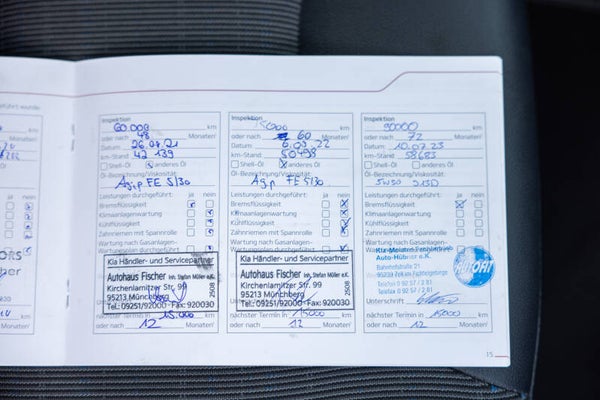 führt wurde:
Inspektion
60.000 km
oder nach 48 Monaten/
Datum 26.07.21
km-Stand 42 139
Shell-Öl anderes Öl
Öl-Bezeichnung/Viskosität:
Agip FE 5130
Leistungen durchgeführt: ja nein
Bremsflüssigkeit
Klimaanlagenwartung
Kühlflüssigkeit
Zahnriemen mit Spannrolle
Wartung nach Gasanlagen-
Wartungsplan durchgeführt
Kia Händler- und Servicepartner
Autohaus Fischer Inh. Stefan Müller e.K.
Kirchenlamitzer Str. 99
95213 Münchberg
Tel.: 09251/92000 · Fax: 920030
2508
nächster Termin in 15.000 km
oder 12 Monaten
Inspektion
km
oder nach 60 Monaten/
Datum 6.05.22
km-Stand 50498
Shell-Öl anderes Öl
Öl-Bezeichnung/Viskosität:
Agip FE 5130
Leistungen durchgeführt: ja nein
Bremsflüssigkeit
Klimaanlagenwartung
Kühlflüssigkeit
Zahnriemen mit Spannrolle
Wartung nach Gasanlagen-
Kia Händler- und Servicepartner
Autohaus Fischer Inh. Stefan Müller e.K.
Kirchenlamitzer Str. 99
95213 Münchberg
Tel.: 09251/92000 · Fax: 920030
2508
nächster Termin in 15000 km
oder 12 Monaten
Inspektion
90000 km
oder nach 72 Monaten/
Datum 10.07.23
km-Stand 58683
Shell-Öl anderes Öl
Öl-Bezeichnung/Viskosität:
5W30
Leistungen durchgeführt: ja nein
Bremsflüssigkeit
Klimaanlagenwartung
Kühlflüssigkeit
Zahnriemen mit Spannrolle
Wartung nach Gasanlagen-
Kfz-Meisterfachbetrieb
Auto-Hübner e.K.
Bahnhofstraße 21
Telefon 0 92 57 / 2 81
Telefax 0 92 57 / 2 81
Unterschrift
nächster Termin in 15000 km
oder 12 Monaten
15